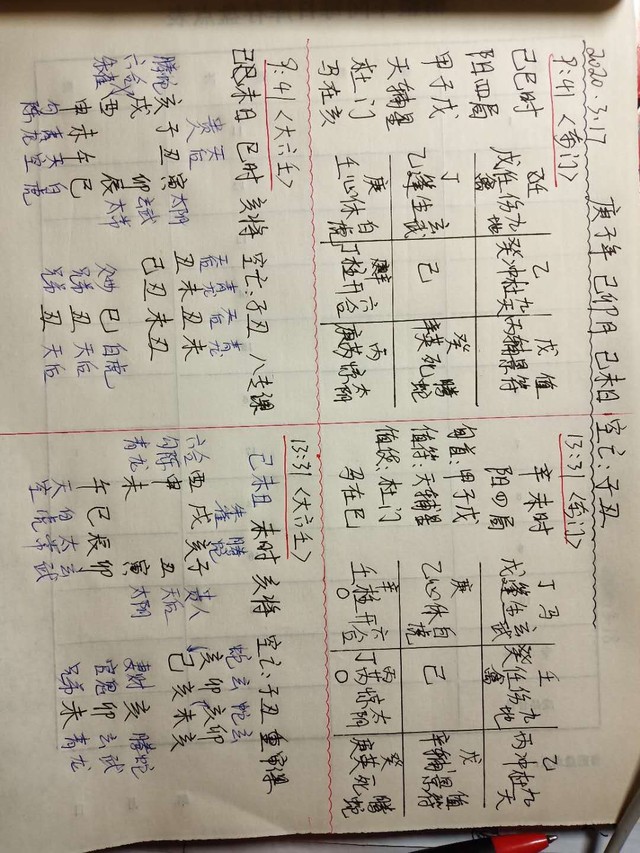 2020.3.17 庚子年 己卯月 己未日 空亡:子丑
9:41 <奇门>
己巳时
阳四局
甲子戊
天辅星
杜门
马在亥
壬 乙 戊 值
戊任伤九地 癸冲杜九天 天辅景符
禽
丁 玄 癸 腾
乙蓬生武 己 辛英死蛇
庚 白 辛 六 丙 太
壬心休虎 丁柱开合 庚芮惊阴
13:31 <奇门>
辛未时
阳四局
旬首:甲子戊
值符:天辅星
值使:杜门
马在巳
丁 马 壬 乙
戊蓬生玄武 癸任伤九地 丙冲杜九天
禽
庚 戊 值
乙心休白虎 己 辛辅景符
辛 六 丙 太 癸 腾
壬柱开合 丁芮惊阴 庚英死蛇
○ ○
9:41 <大六壬>
己未日 巳时 亥将 空亡:子丑 八专课
贵人 天后
腾蛇 亥 子 丑 寅 太阴
六合 朱雀 戌 卯 玄武
酉 辰 太常
申 未 午 巳
勾陈 青龙 天空 白虎
天后 青龙 天后 青龙
丑 未 丑 未
己 丑 未 丑
父母 巳 白虎
兄弟 丑 天后
兄弟 丑 天后
13:31 <大六壬>
己未日 未时 亥将 空亡:子丑 重审课
朱雀 腾蛇
六合 酉 戌 亥 子 贵人
勾陈 申 丑 天后
青龙 未 寅 太阴
午 巳 辰 卯
天空 白虎 太常 玄武
蛇 玄 蛇 玄
亥 卯 亥 卯
己 亥 未 亥
妻财 亥 腾蛇
官鬼 卯 玄武
兄弟 未 青龙